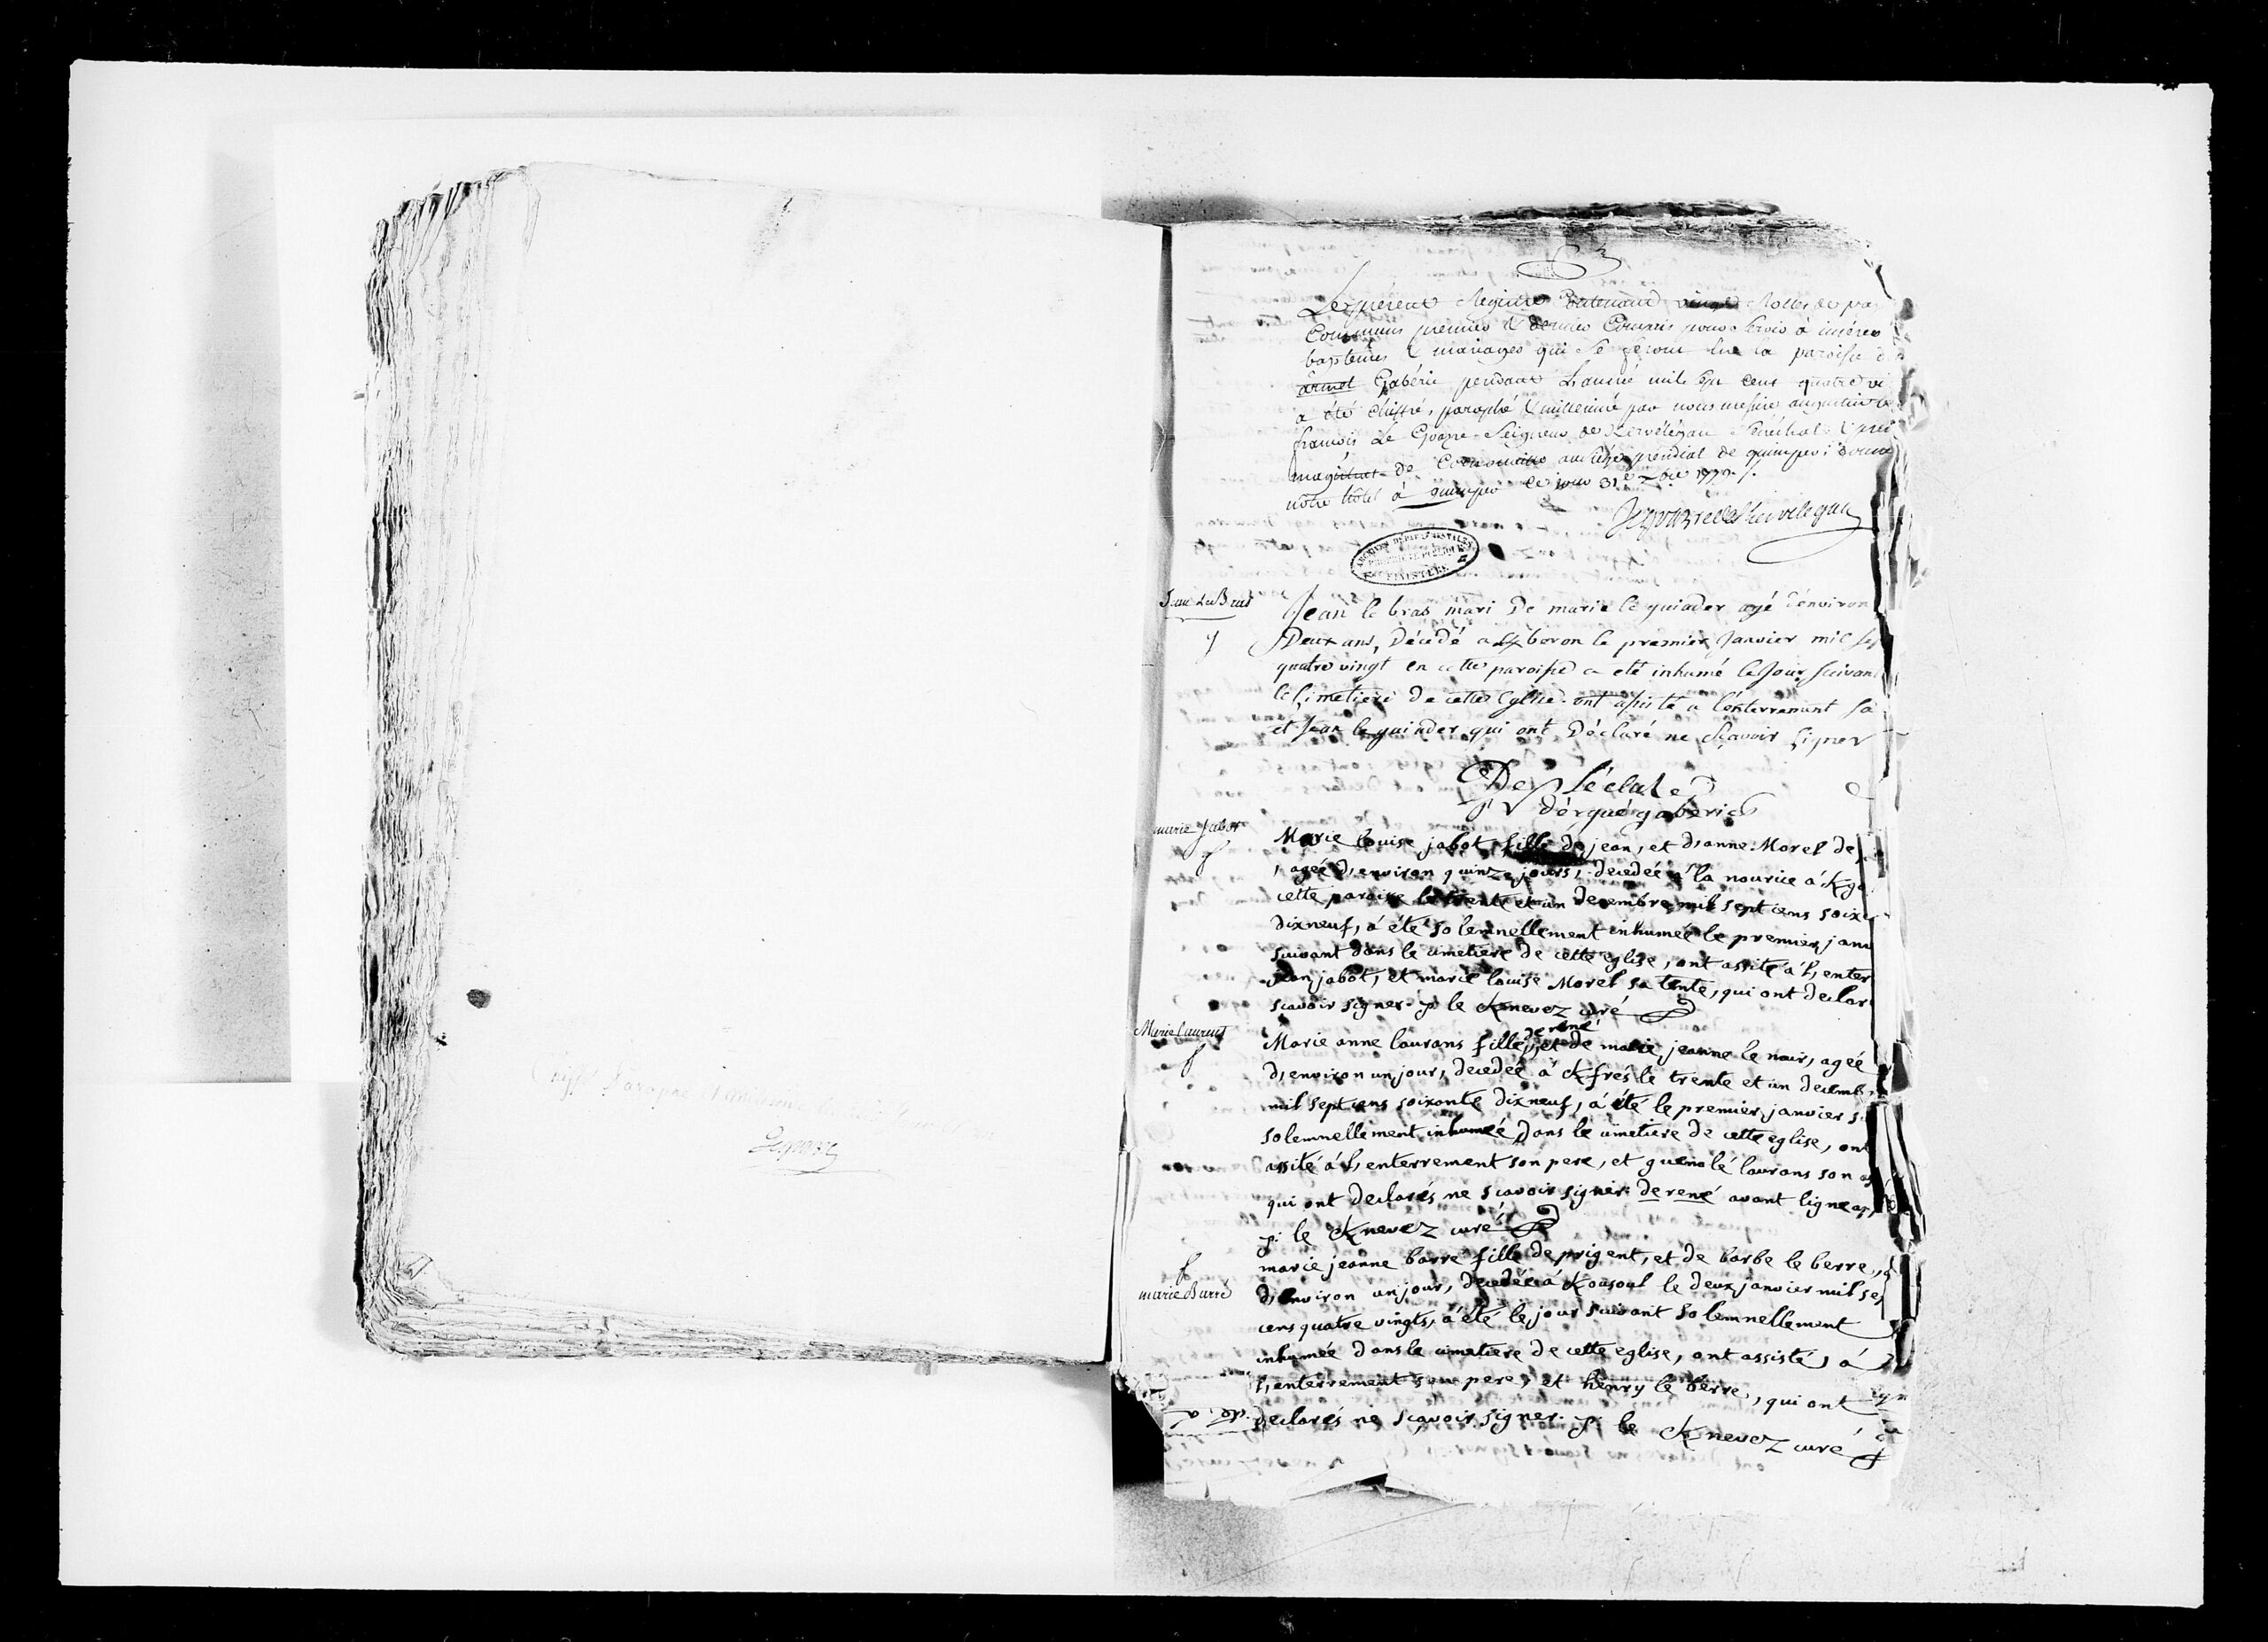 Chiffré Paraphé
Le present Registre Contenant vingt Rolles de pa
Communs premier & dernier Compris pour Servir à insérer
baptemes & mariages qui se feront sur la paroisse d
armel Gabéric pendant L'année mil sept cens quatre vi
a été chiffré, paraphé & millesimé par nous messire augustin be
françois Le Goazre Seigneur de Kervélégan Sénéchal & prem
magistrat de Cornouaille au siège présidial de quimper; donné
notre hôtel à quimper ce jour 31e xbre 1779 ./.
Le goazre de Kervelegan
ARCHIVES DÉPARTEMENTALES
FINISTÈRE
Jean Le Bras
Jean le bras mari De marie le guiader agé d'environ
Deux ans, Décédé a Kboron le premier Janvier mil sep
quatre vingt en cette paroisse a eté inhumé le Jour suivant
le Simetiere De cette Eglise. ont assisté a l'enterrement sa
et Jean le guiader qui ont Déclaré ne Sçavoir Signer
d'ergué gaberic
marie Jabot
Marie louise jabot fille de jean, et d,anne Morel de
, agée d,environ quinze jours, decedée à la nourice á Kga
cette paroisse le trente et un decembre mil sept cens soix
dixneuf, á été solemnellement inhumée le premier janv
suivant dans le cimetiere de cette eglise, ont assité á l,enter
jean jabot, et marie louise Morel sa tente, qui ont declar
scavoir signer. p: le Knevez curé
Marie laurent
de rené
Marie anne laurans fille, et de marie jeanne le naur, agée
d,environ un jour, decedée á Kfrés le trente et un decemb
mil sept cens soixante dixneuf, á été le premier janvier s
solemnellement inhumée dans le cimetiere de cette eglise, ont
assité á l,enterrement son pere, et guenolé laurans son
qui ont declarés ne scavoir signer. de rené avant ligne ap
p: le Knevez curé
marie jeanne barré fille de prigent, et de barbe le berre, a
marie Barré
d,environ un jour, decedée á Kousoul le deux janvier mil sep
cens quatre vingts, á été le jour suivant solemnellement
inhumée dans le cimetiere de cette eglise, ont assisté, á
l,enterrement son pere, et henry le berre, qui ont
declarés ne sçavoir signer. p: le Knevez curé